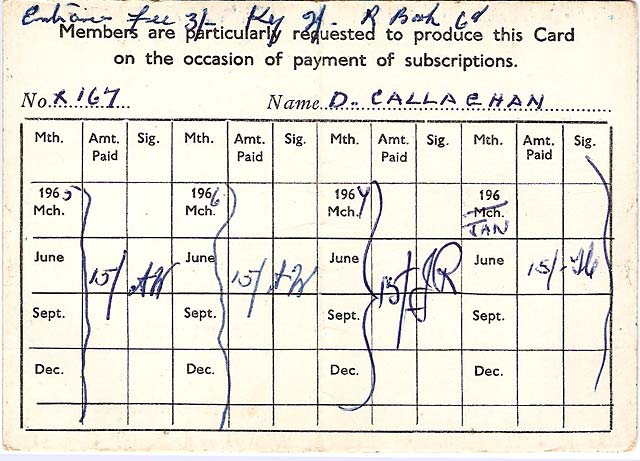 Entrance Fee 3/- Key 2/- R Book 6d
Members are particularly requested to produce this Card
on the occasion of payment of subscriptions.
No. X 167 Name D. CALLAGHAN
Mth. Amt. Paid Sig. Mth. Amt. Paid Sig. Mth. Amt. Paid Sig. Mth. Amt. Paid Sig.
1965 Mch. 1966 Mch. 196 Mch. 196 Mch. JAN
June 15/ AW June 15/ AW June 15/ JR June 15/-
Sept. Sept. Sept. Sept.
Dec. Dec. Dec. Dec.